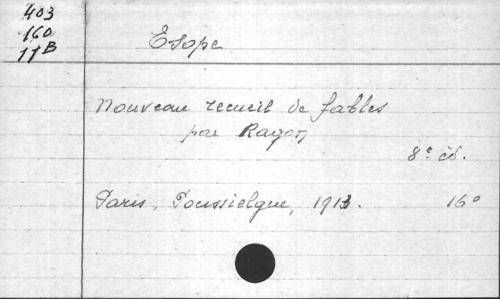 403
160
11B
Esope
Nouveau recueil de fables
par Ragon
8e éd.
Paris, Poussielgue, 1913. 16o